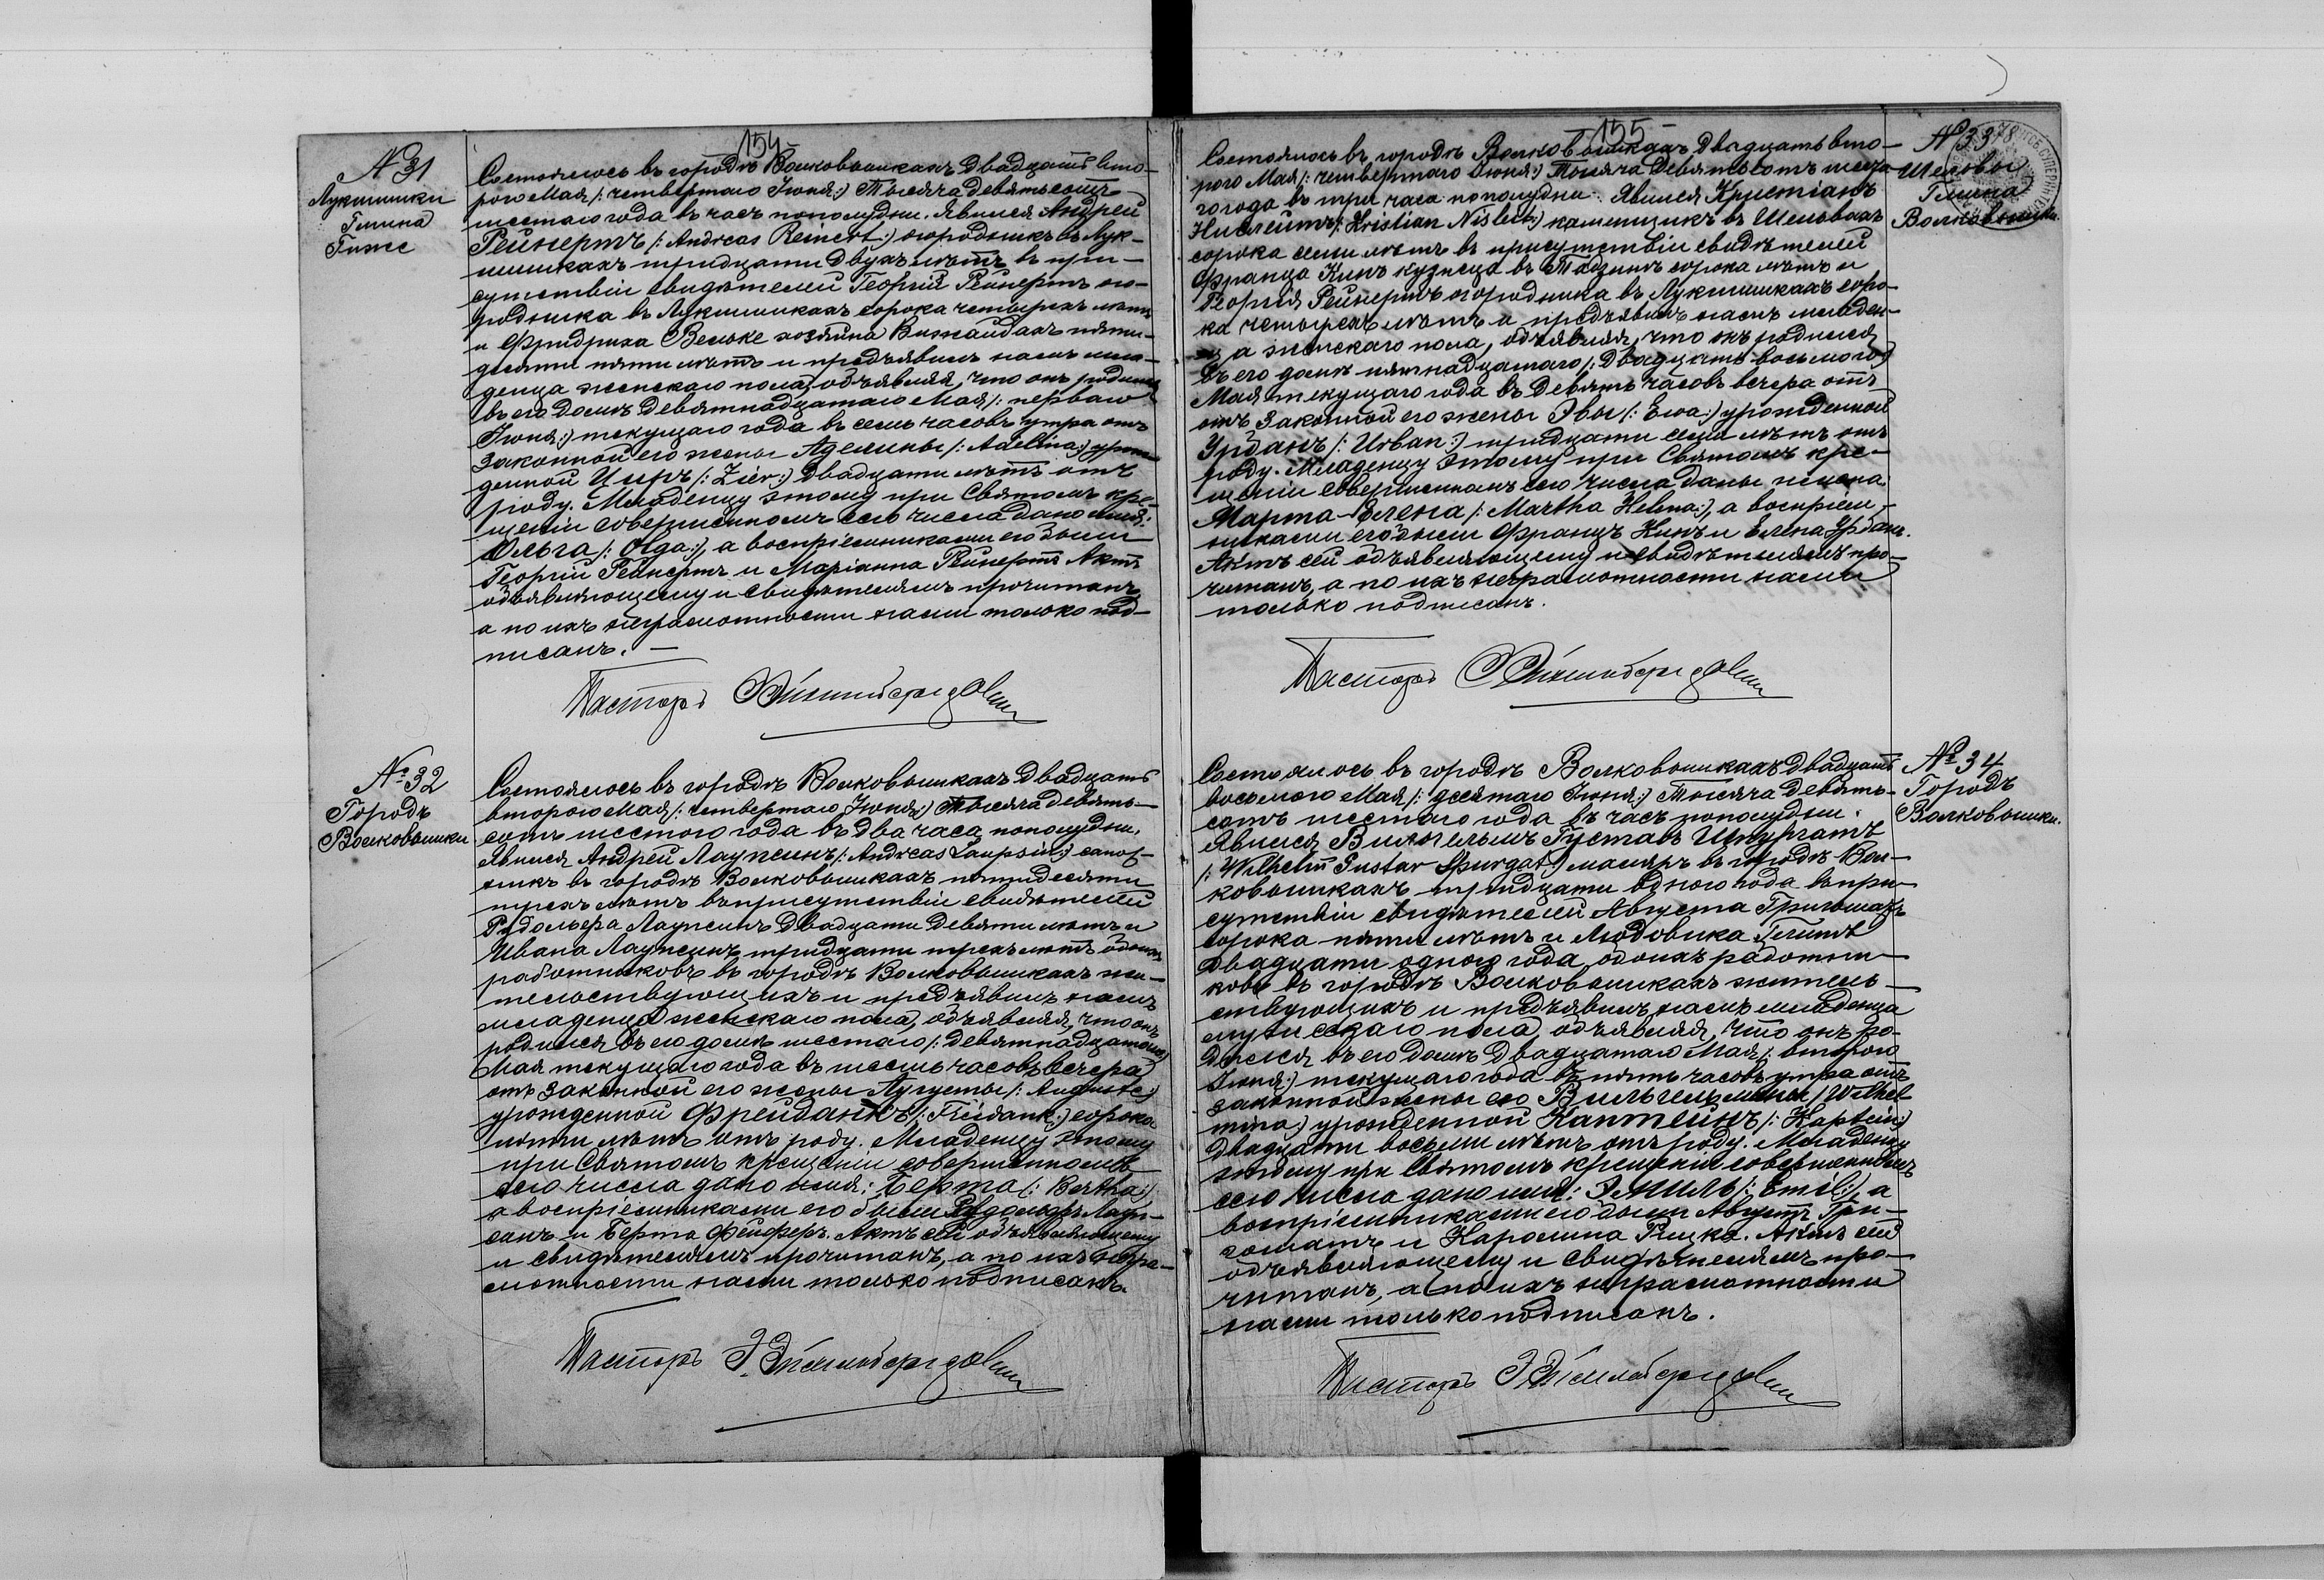 154
№ 31
Лукшишки
Гмина
Гиже
Состоялось въ городѣ Волковышкахъ двадцать вто-
рого Мая /: четвертаго Іюня :/ Тысяча девятьсотъ
шестаго года въ часъ пополудни. Явился Андрей
Рейнертъ /: Andreas Reinert :/ огородникъ въ Лук-
шишкахъ тридцати двухъ лѣтъ въ при-
сутствіи свидѣтелей Георгія Рейнертъ ого-
родника въ Лукшишкахъ сорока четырехъ лѣтъ
и Фридриха Вельке хозяина Вижайдахъ пяти-
десяти пяти лѣтъ и предъявилъ намъ мла-
денца женскаго пола, объявляя, что онъ родился
въ его домѣ девятнадцатаго Мая /: перваго
Іюня :/ текущаго года въ семь часовъ утра отъ
законной его жены Аделины /: Adelina :/ урож-
денной Циръ /: Zier :/ двадцати лѣтъ отъ
роду. Младенцу этому при Святомъ кре-
щеніи совершенномъ сего числа дано имя:
Ольга /: Olga :/, а воспріемниками его были
Георгій Рейнертъ и Маріанна Рейнертъ Актъ
объявляющему и свидѣтелямъ прочитанъ,
а по ихъ неграмотности нами только под-
писанъ. —
Пасторъ
№ 32
Городъ
Волковышки
Состоялось въ городѣ Волковышкахъ двадцать
второго Мая /: четвертаго Іюня :/ Тысяча девять-
сотъ шестого года въ два часа пополудни.
Явился Андрей Лаупсинъ /: Andreas Laupsin :/ сапож-
никъ въ городѣ Волковышкахъ пятидесяти
трехъ лѣтъ въ присутствіи свидѣтелей
Рудольфа Лаупсинъ двадцати девяти лѣтъ и
Ивана Лаупсинъ тридцати трехъ лѣтъ обоихъ
работниковъ въ городѣ Волковышкахъ жи-
тельствующихъ и предъявилъ намъ
младенца женскаго пола, объявляя, что онъ
родился въ его домѣ шестаго /: девятнадцатаго :/
Мая текущаго года въ шесть часовъ вечера
отъ законной его жены Аугусты /: Auguste :/
урожденной Фрейданкъ /: Freidank :/ сорока
пяти лѣтъ отъ роду. Младенцу этому
при Святомъ крещеніи совершенномъ
сего числа дано имя: Берта /: Bertha :/
а воспріемниками его были Рудольфъ Лауп-
синъ и Берта Фейферъ. Актъ сей объявляющему
и свидѣтелямъ прочитанъ, а по ихъ негра-
мотности нами только подписанъ.
Пасторъ
155
№ 33
Шельвы
Гмина
Волковышки
Состоялось въ городѣ Волковышкахъ двадцать вто-
рого Мая /: четвертаго Іюня :/ Тысяча девятьсотъ шеста-
го года въ три часа пополудни. Явился Христіанъ
Нислейтъ /: Kristian Nisleit :/ каменщикъ въ Шельвахъ
сорока семи лѣтъ въ присутствіи свидѣтелей
Франца Кинъ кузнеца въ сорока лѣтъ и
Георгія Рейнертъ огородника въ Лукшишкахъ соро-
ка четырехъ лѣтъ и предъявилъ намъ младен-
ца женскаго пола, объявляя, что онъ родился
въ его домѣ пятнадцатаго /: двадцать восьмого :/
Мая текущаго года въ девять часовъ вечера отъ
отъ законной его жены Эвы /: Ewa :/ урожденной
Урбанъ /: Urban :/ тридцати семи лѣтъ отъ
роду. Младенцу этому при Святомъ кре-
щеніи совершенномъ сего числа даны имена:
Марта-Елена /: Martha Helena :/, а воспріем-
никами его были Францъ Кинъ и Елена Урбанъ.
Актъ сей объявляющему и свидѣтелямъ про-
читанъ, а по ихъ неграмотности нами
только подписанъ.
Пасторъ
№ 34
Городъ
Волковышки.
Состоялось въ городѣ Волковышкахъ двадцать
восьмого Мая /: десятаго Іюня :/ Тысяча девять-
сотъ шестаго года въ часъ пополудни.
Явился Вильгельмъ Густавъ Шпургатъ
/: Wilhelm Gustav Spurgat :/ маляръ въ городѣ Вол-
ковышкахъ тридцати одного года въ при-
сутствіи свидѣтелей Августа Григошатъ
сорока пяти лѣтъ и Людовика
двадцати одного года, обоихъ работни-
ковъ въ городѣ Волковышкахъ житель-
ствующихъ и предъявилъ намъ младенца
мужескаго пола, объявляя, что онъ ро-
дился въ его домѣ двадцатаго Мая /: второго
Іюня :/ текущаго года въ пять часовъ утра отъ
законной жены его Вильгельмины /: Wilhel-
mina :/ урожденной Каптейнъ /: Kaptein :/
двадцати восьми лѣтъ отъ роду. Младенцу
этому при Святомъ крещеніи совершенномъ
сего числа дано имя: Эмиль /: Emil :/, а
воспріемниками его были Августъ Гри-
гошатъ и Каролина Рицка. Актъ сей
объявляющему и свидѣтелямъ про-
читанъ, а по ихъ неграмотности
нами только подписанъ.
Пасторъ